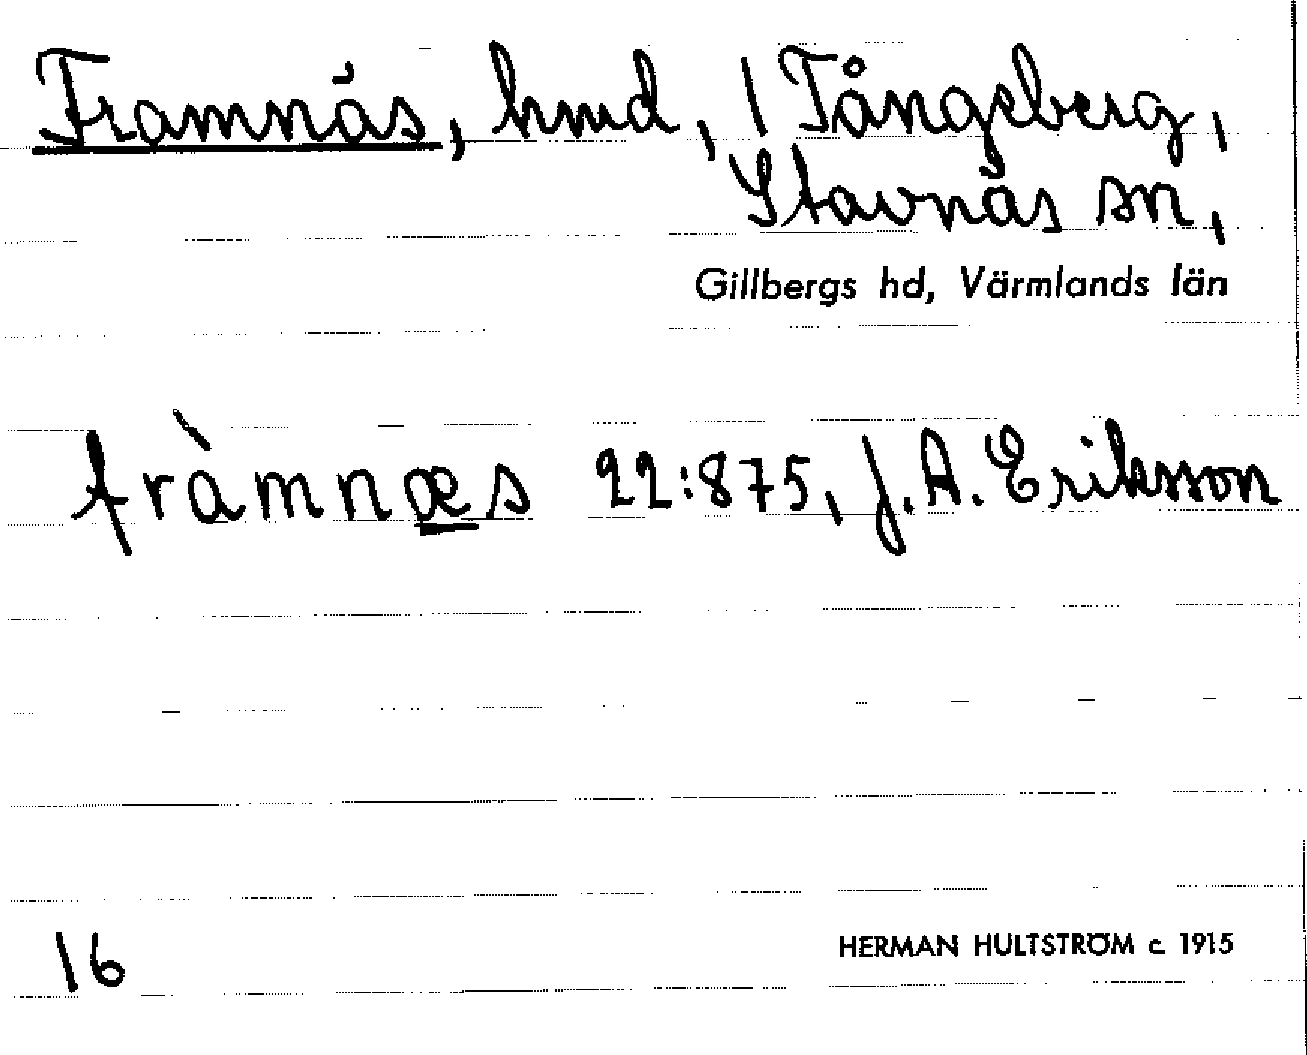 Framnäs, hmd, / Tångeberg,
Stavnäs sn,
Gillbergs hd, Värmlands län
fràmnæs 22:875, J. A. Eriksson
16
HERMAN HULTSTRÖM c. 1915